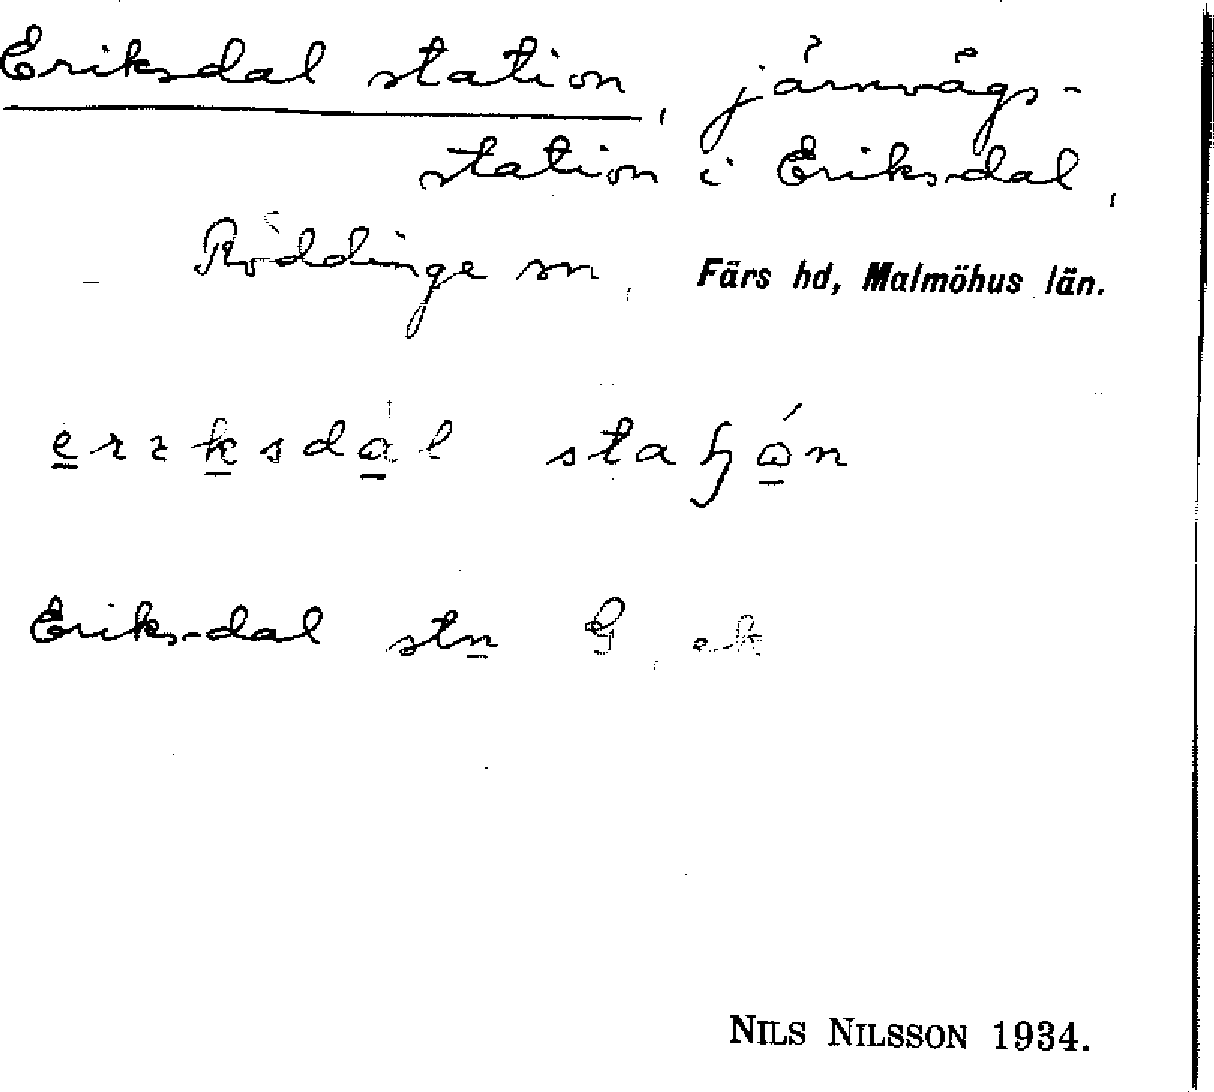 Eriksdal station, järnvägs-
station i Eriksdal,
Röddinge sn, Färs hd, Malmöhus län.
Eriksdal stn G, ek
NILS NILSSON 1934.